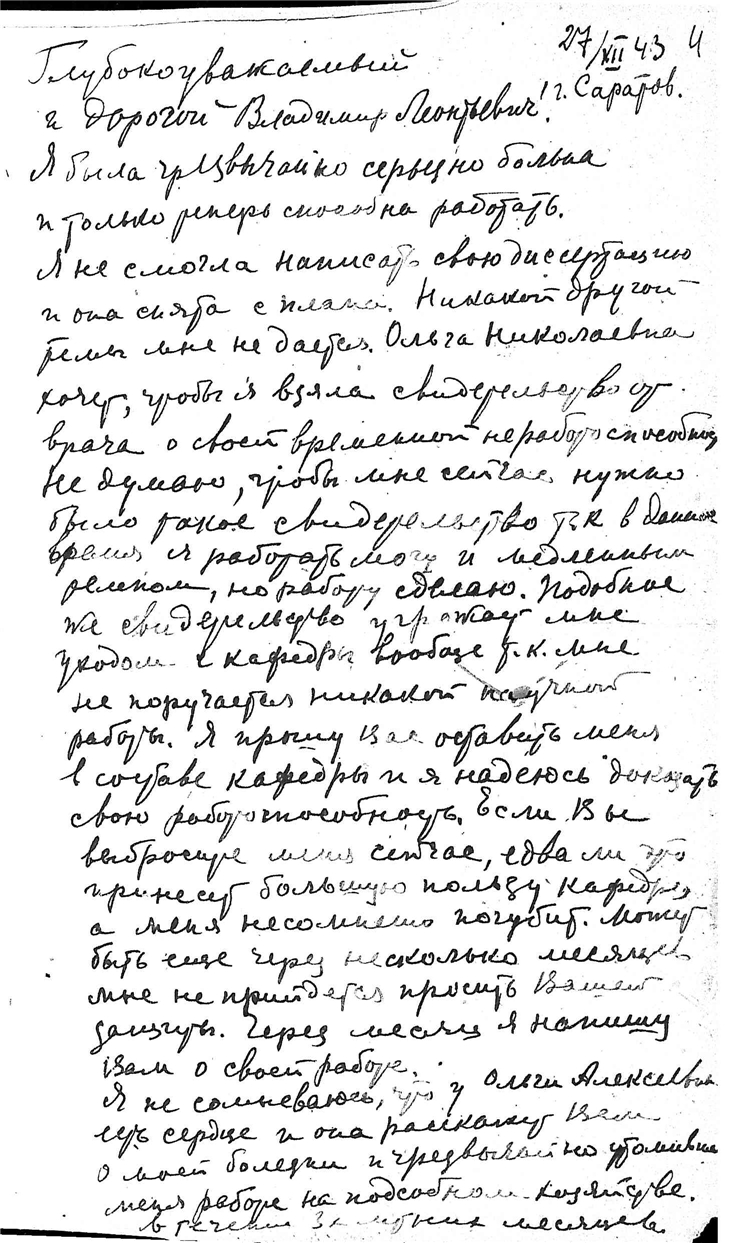 27/XII 43 4
г. Саратов.
Глубокоуважаемый
и дорогой Владимир Леонтьевич!
Я была чрезвычайно серьезно больна
и только теперь способна работать.
Я не смогла написать свою диссертацию
и она снята с плана. Никакой другой
темы мне не дается. Ольга Николаевна
хочет, чтобы я взяла свидетельство от
врача о своей временной неработоспособности
Не думаю, чтобы мне сейчас нужно
было такое свидетельство т.к в данное
время я работать могу и медленным
темпом, но работу сделаю. Подобное
же свидетельство угрожает мне
уходом с кафедры вообще т.к. мне
не поручается никакой научной
работы. Я прошу Вас оставить меня
в составе кафедры и я надеюсь доказать
свою работоспособность. Если Вы
выбросите меня сейчас, едва ли это
принесет большую пользу кафедре,
а меня несомненно погубит. Может
быть еще через несколько месяцев
мне не прийдется просить Вашей
защиты. Через месяц я напишу
Вам о своей работе.
Я не сомневаюсь, что у Ольги Алексеевны
есть сердце и она расскажет Вам
о моей болезни и чрезвычайно утомившей
меня работе на подсобном хозяйстве.
в течении 3х летних месяцев.